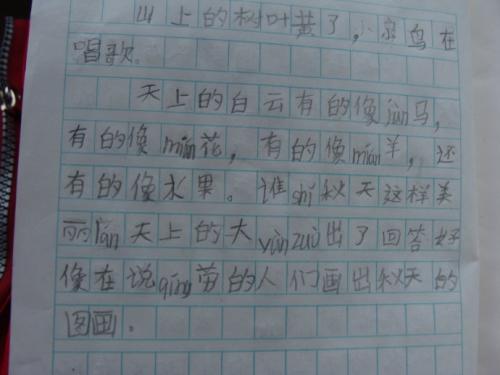 山上的树叶黄了，小鸟在
唱歌。
天上的白云有的像jùn马，
有的像mián花，有的像mián羊，还
有的像水果。谁shǐ秋天这样美
丽lán天上的大yànzuò出了回答好
像在说qíng劳的人们画出秋天的
图画。